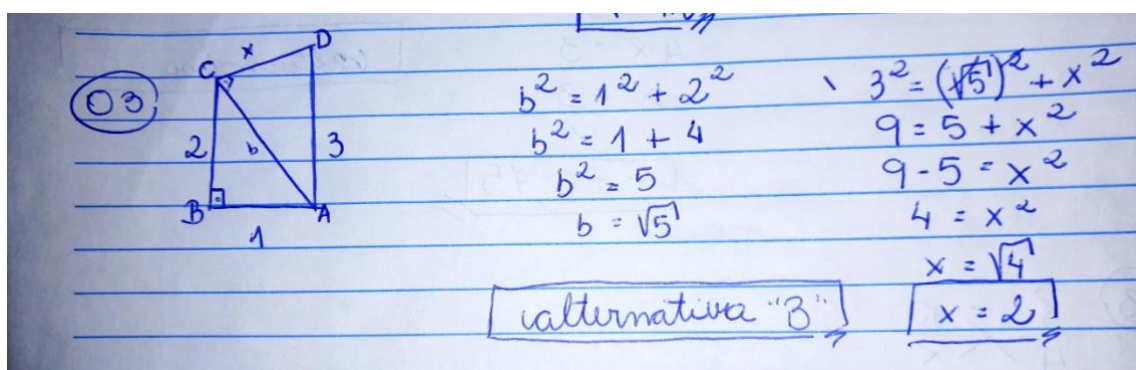 03
x
C
D
2
b
3
B
A
1
b² = 1² + 2²
b² = 1 + 4
b² = 5
b = √5
3² = (√5)² + x²
9 = 5 + x²
9 - 5 = x²
4 = x²
x = √4
x = 2
alternativa "B"